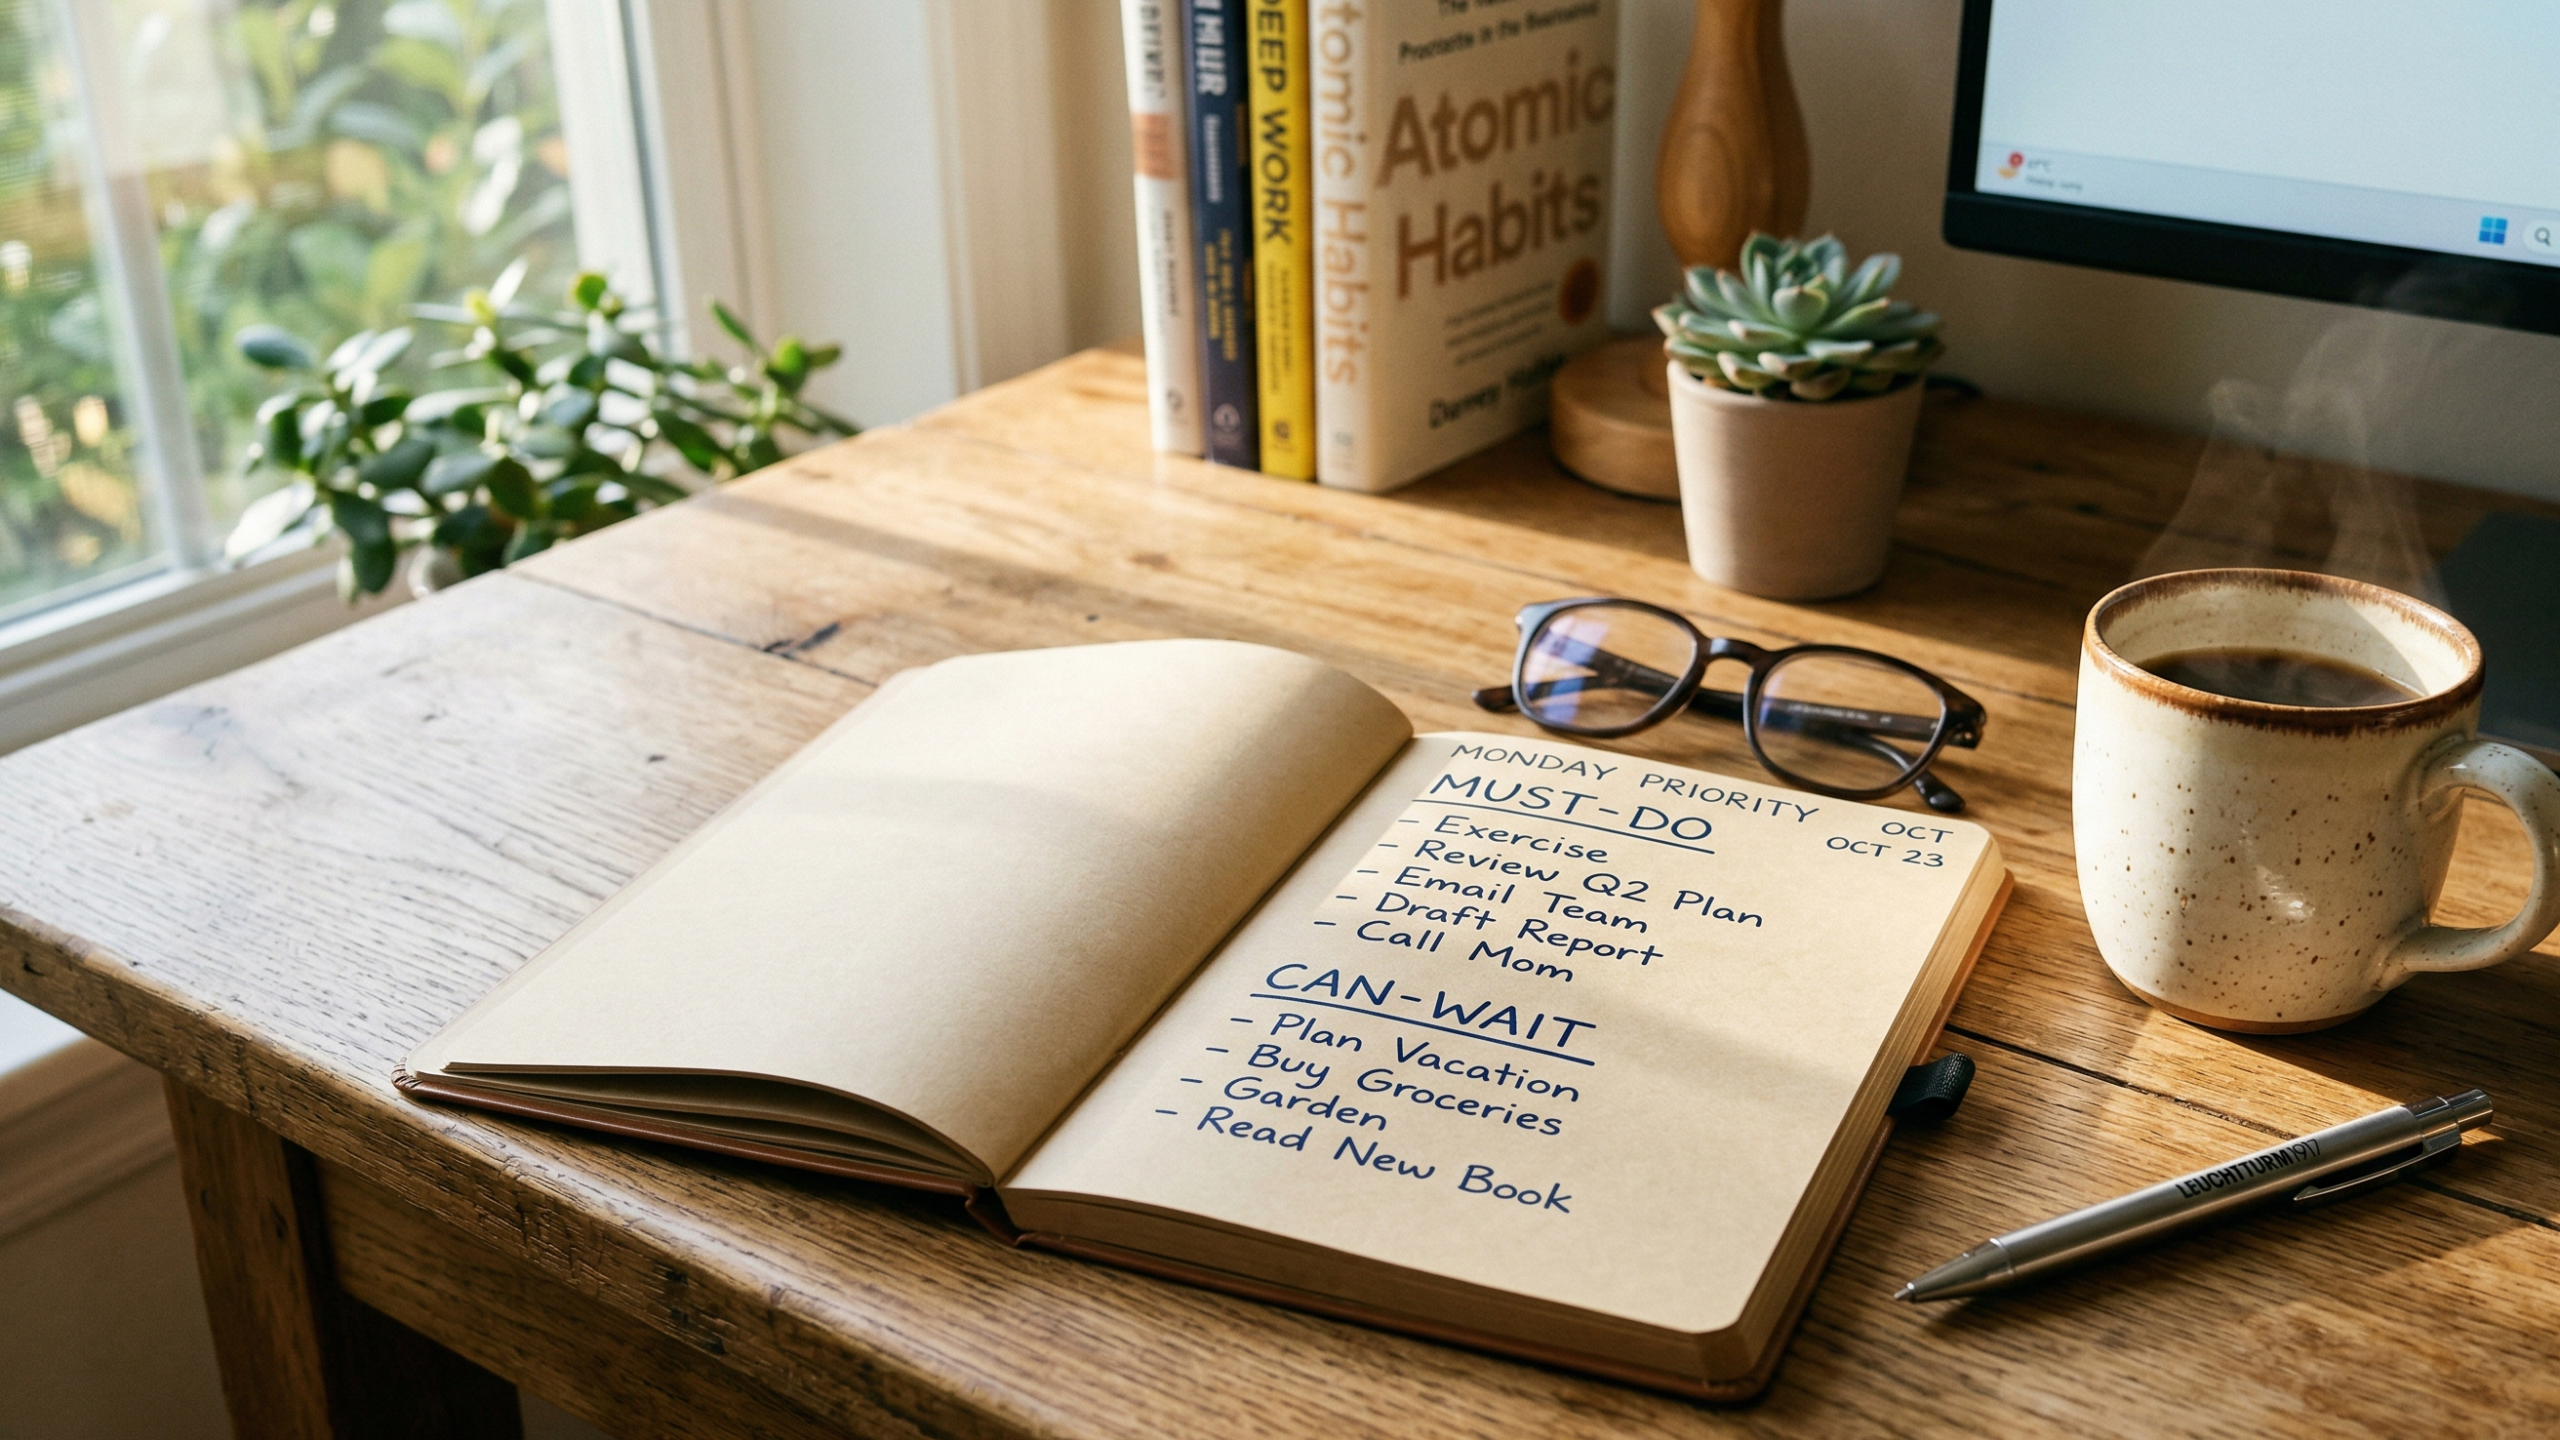 DEEP WORK
Atomic Habits
Atomic
Habits
MONDAY PRIORITY
OCT
OCT 23
MUST-DO
- Exercise
- Review Q2 Plan
- Email Team
- Draft Report
- Call Mom
CAN-WAIT
- Plan Vacation
- Buy Groceries
- Garden
- Read New Book
LEUCHTTURM1917